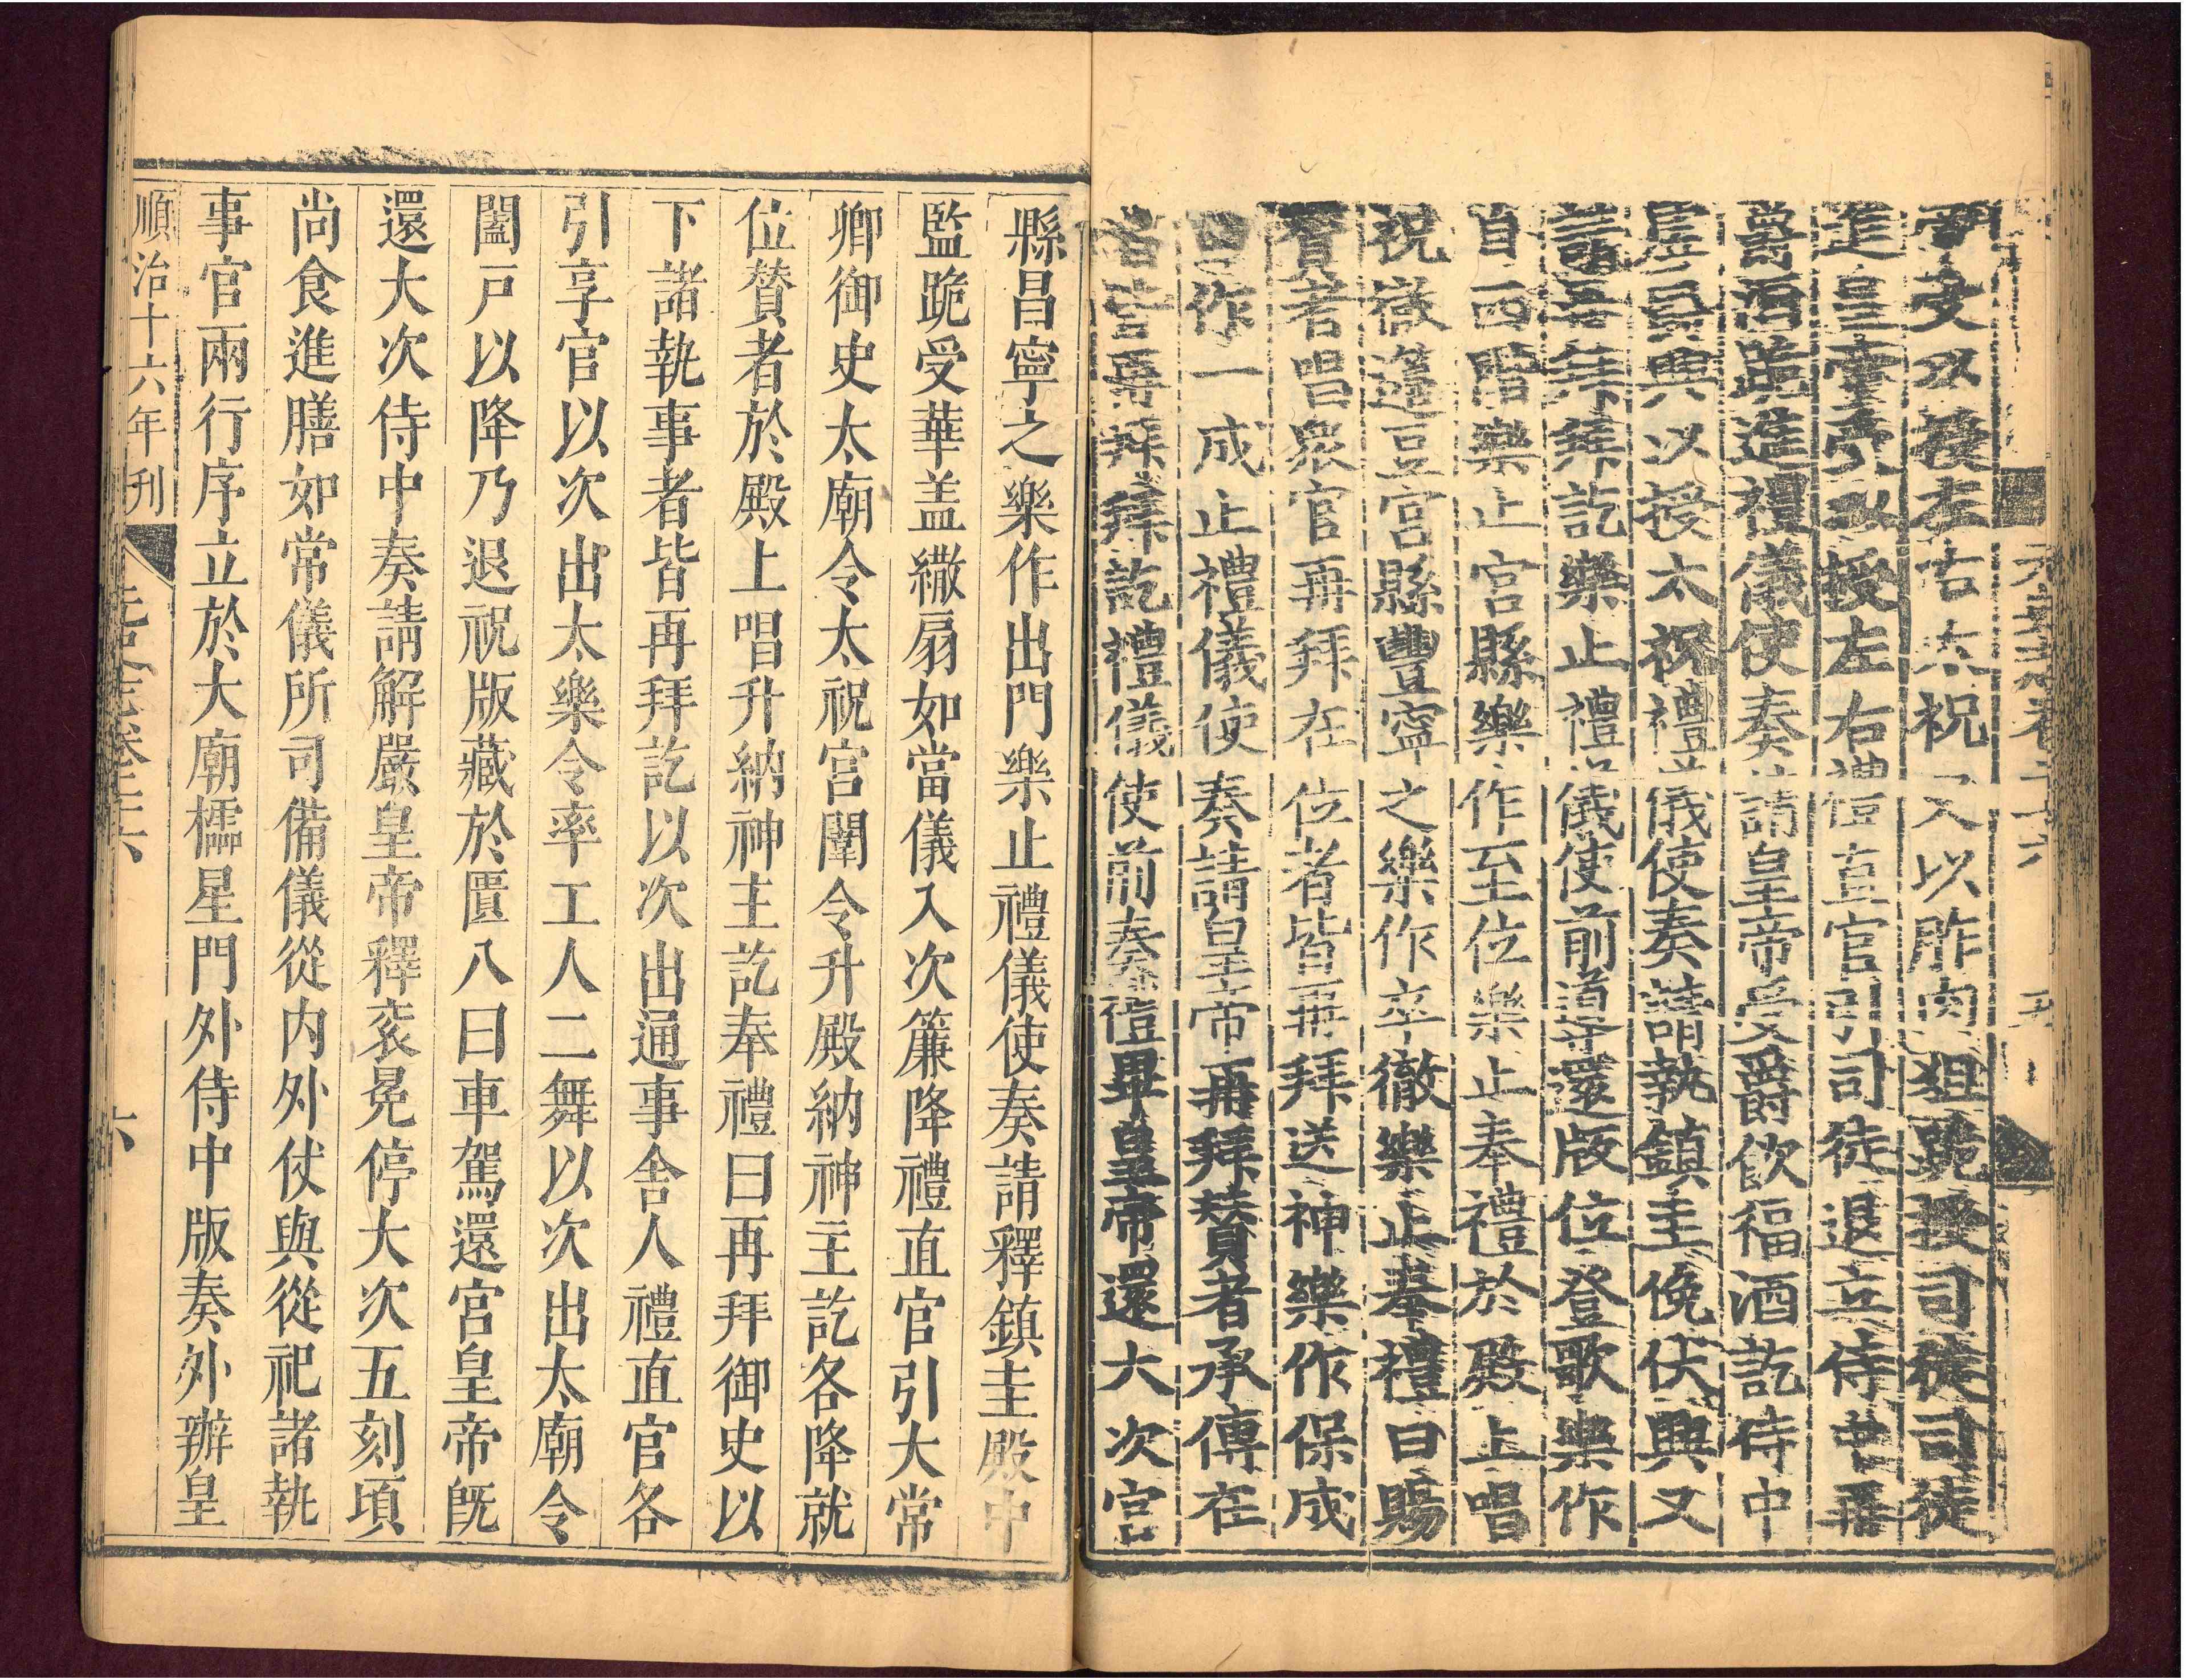 帝受以授左右太祝又以胙肉俎跪授司徒司徒
進皇帝受以授左右禮直官引司徒退立侍中再
爵酒跪進禮儀使奏請皇帝受爵飲福酒訖侍中
虛爵興以授太祝禮儀使奏請執鎮圭俛伏興又
請再拜拜訖樂止禮儀使前導還版位登歌樂作
自西階樂止宮縣樂作至位樂止奉禮於殿上唱
祝徹籩豆宮縣豐寧之樂作卒徹樂止奉禮曰賜
贊者唱眾官再拜在位者皆再拜送神樂作保成
作一成止禮儀使奏請皇帝再拜贊者承傳在
者皆再拜拜訖禮儀使前奏禮畢皇帝還大次宮
縣昌寧之樂作出門樂止禮儀使奏請釋鎮圭殿中
監跪受華盖繖扇如當儀入次簾降禮直官引大常
卿御史太廟令太祝宮闈令升殿納神主訖各降就
位贊者於殿上唱升納神主訖奉禮曰再拜御史以
下諸執事者皆再拜訖以次出通事舍人禮直官各
引享官以次出太樂令率工人二舞以次出太廟令
闔戸以降乃退祝版藏於匱八曰車駕還宮皇帝旣
還大次侍中奏請解嚴皇帝釋衮冕停大次五刻頃
尚食進膳如常儀所司備儀從内外仗與從祀諸執
事官兩行序立於大廟櫺星門外侍中版奏外辦皇
順治十六年刊 元史志卷二十六 六